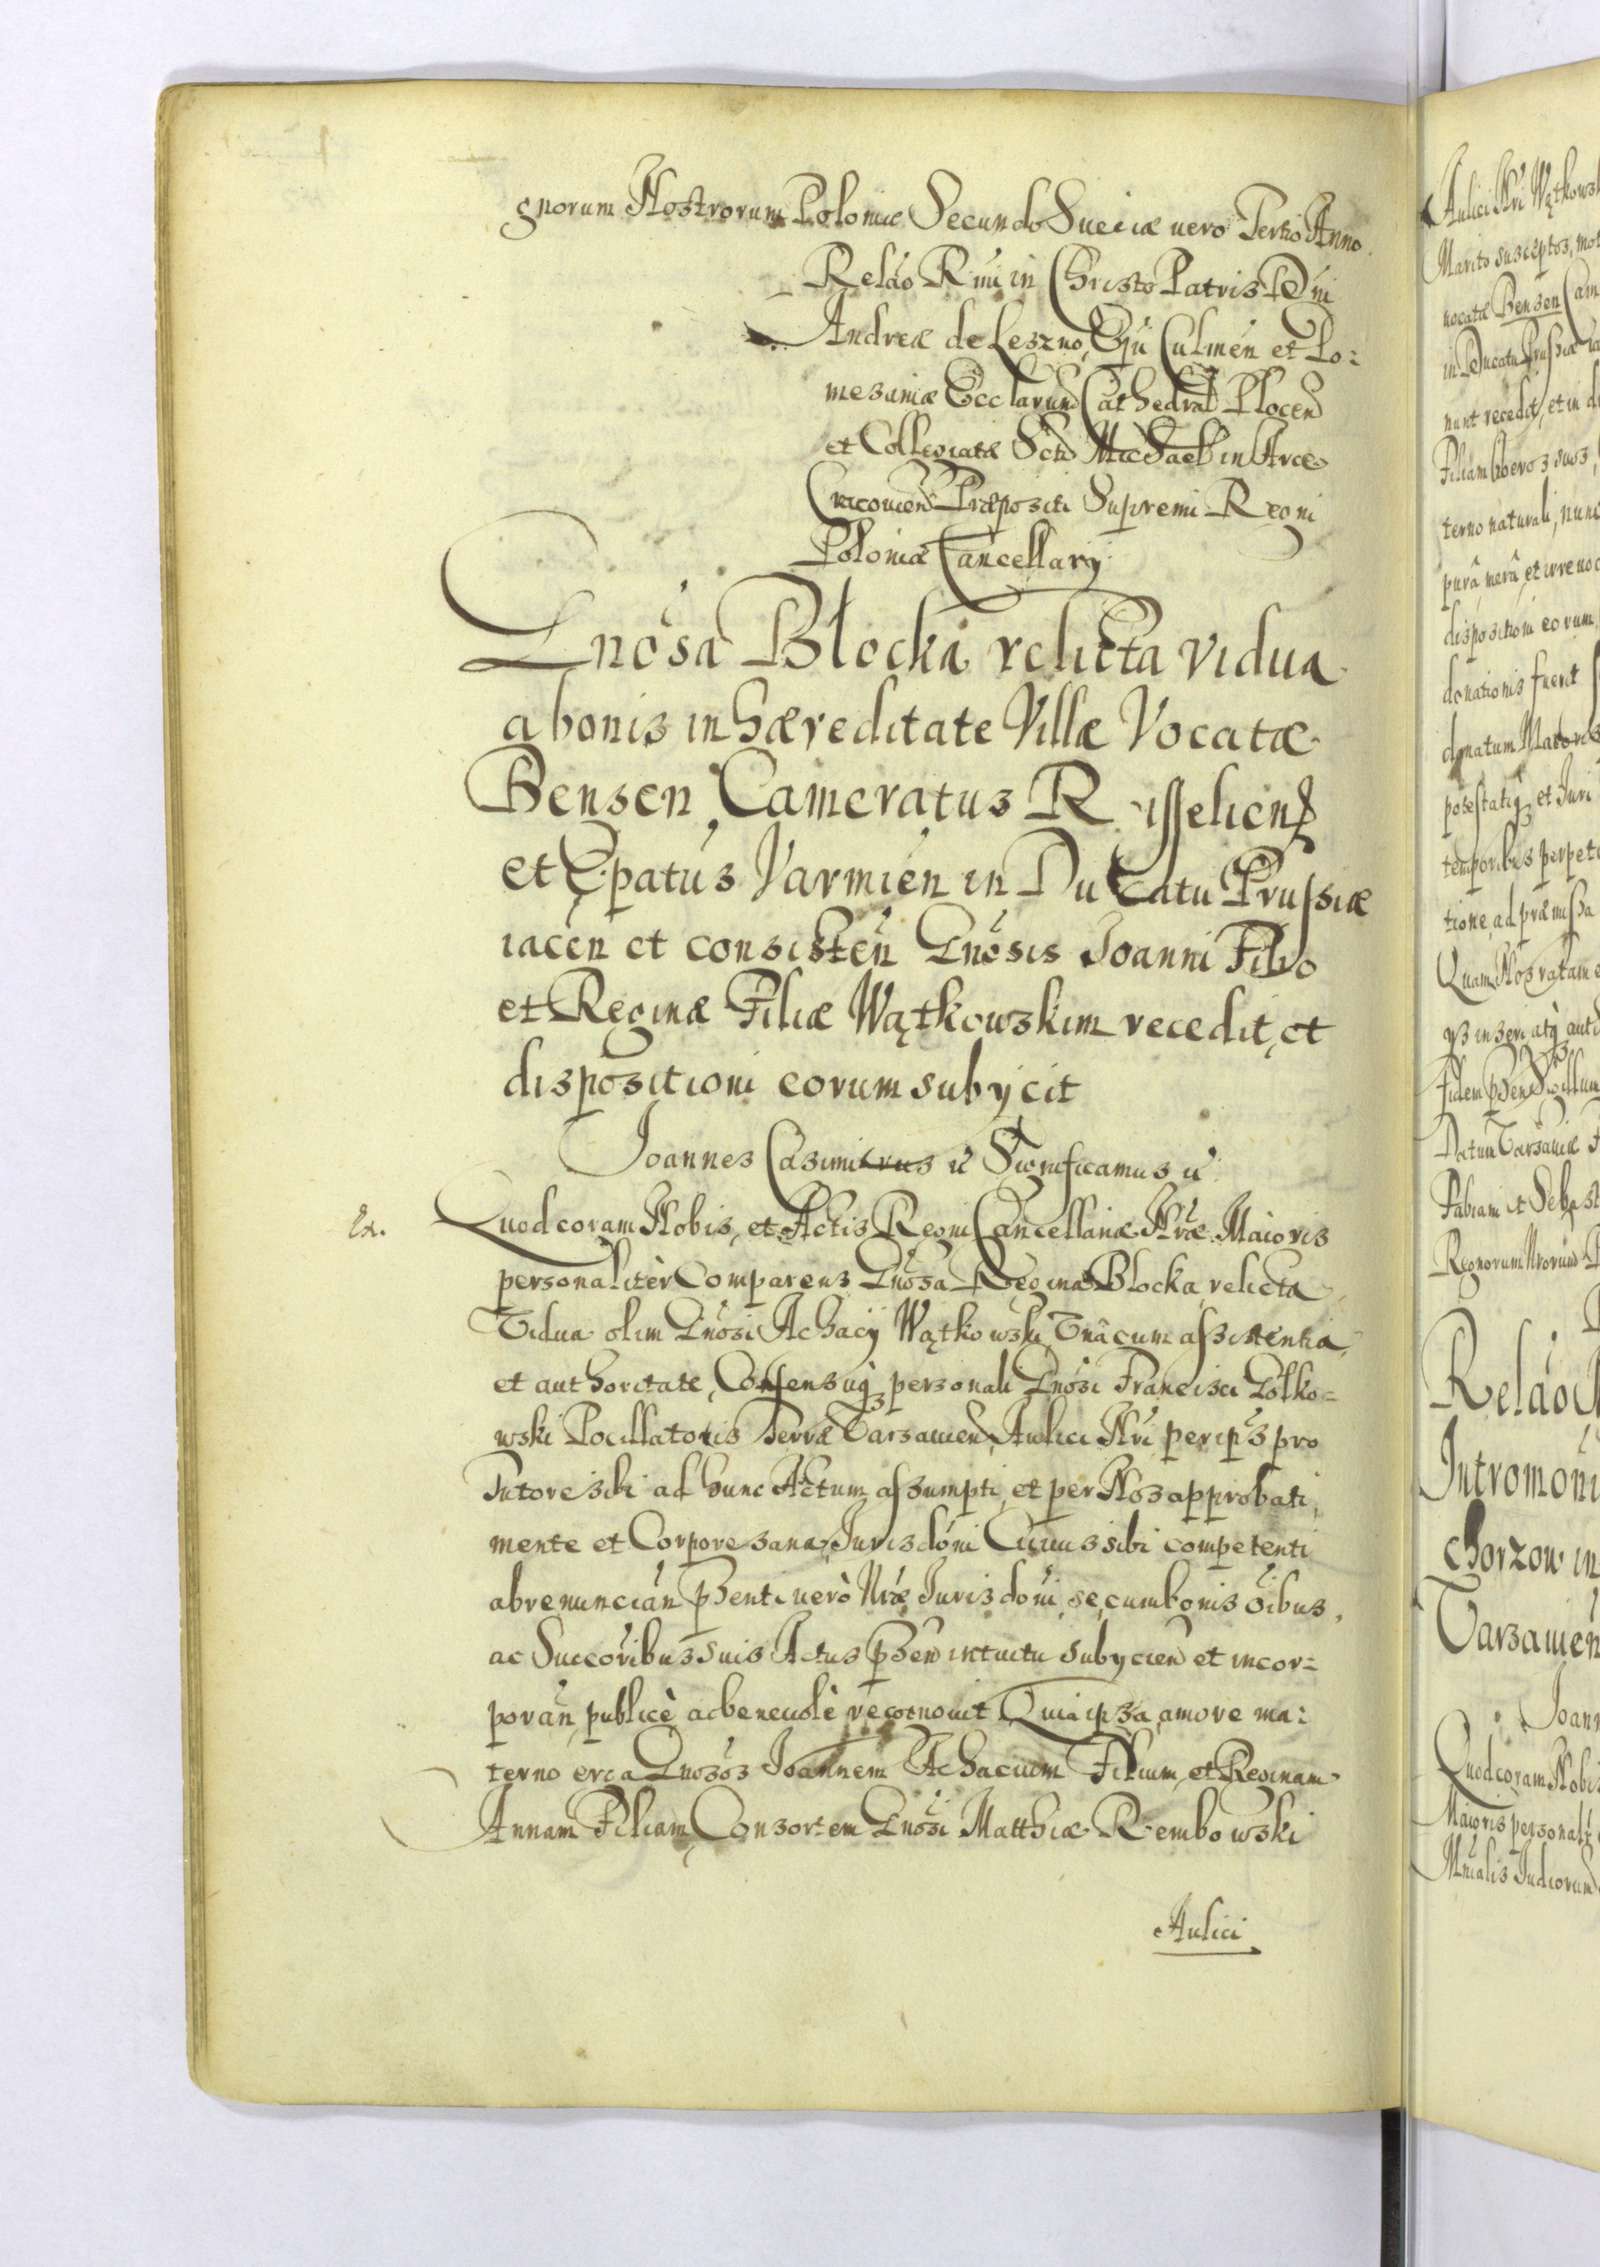 gnorum Nostrorum Poloniæ Secundo Sueciæ uero Tertio Anno.
Relão Rmi in Christo Patris Dni
Andreæ de Leszno, Epi Culmeñ et Po:
mesaniæ Ecclarum Cathedral Plocen
et Collegiatæ Scti Michaelis in Arce
Cracouien Præpositi Supremi Regni
Poloniæ Cancellarij
Gnosa Blocka relicta vidua
a bonis in hæreditate Villæ Vocatæ
Bensen, Cameratus R isselien
et Epatus Varmien in Ducatu Prussiæ
iacen et consisteñ Gnosis Joanni Filio
et Reginæ Filiæ Wątkowskim recedit, et
dispositioni eorum subijcit
Joannes Casimirus &c Significamus &c
Quod coram Nobis, et Actis Regni Cancellariæ Nræ Maioris
personalitèr Comparens Gnosa Regina Blocka relicta
Vidua olim Gnosi Achacij Wątkowski, Vnàcum assistentia,
et authoritate, Consensuq personali Gnosi Francisci Golko=
wski Pocillatoris Terræ Varsauien, Aulici Nri per ipsus pro
Tutore sibi ad hunc Actum assumpti, et per Nos approbati,
mente et Corpore sana, Jurisdoni Cuiuis sibi competenti
abrenuncian, pñti uerò Nræ Jurisdoni, se cum bonis oibus,
ac Succoribus suis Actus psen intuitu subijcien et incor=
porañ, publicè ac beneuolè recognouit Quia ipsa amore ma:
terno erga Gnosos Joannem Achacium Filium, et Reginam
Annam Filiam, Consortem Gnosi Matthiæ Rembowski
Aulici
Aulici Nri Wątkowsk
Marito susceptos, mot
uocatæ Bensen Cam
in Ducatu Prussiæ ia
nunt recedit, et in di
Filiam hoeros suos,
terno naturali, nunc
purâ merâ, et irreuoc
dispositioni eorum
donationis fuerit
donatum Maioris
potestatiq et Juri
temporibus perpetu
tione ad præmissa
Quam Nos ratam e
ijs inseri atq auth
fidem psen Sigillum
Datum Varsauiæ F
Fabiani et Sebast
Regnorum Nrorum P
Relão
Intromoni
chorzow in
Varsauien
Joann
Quod coram Nobis
Maioris personalit